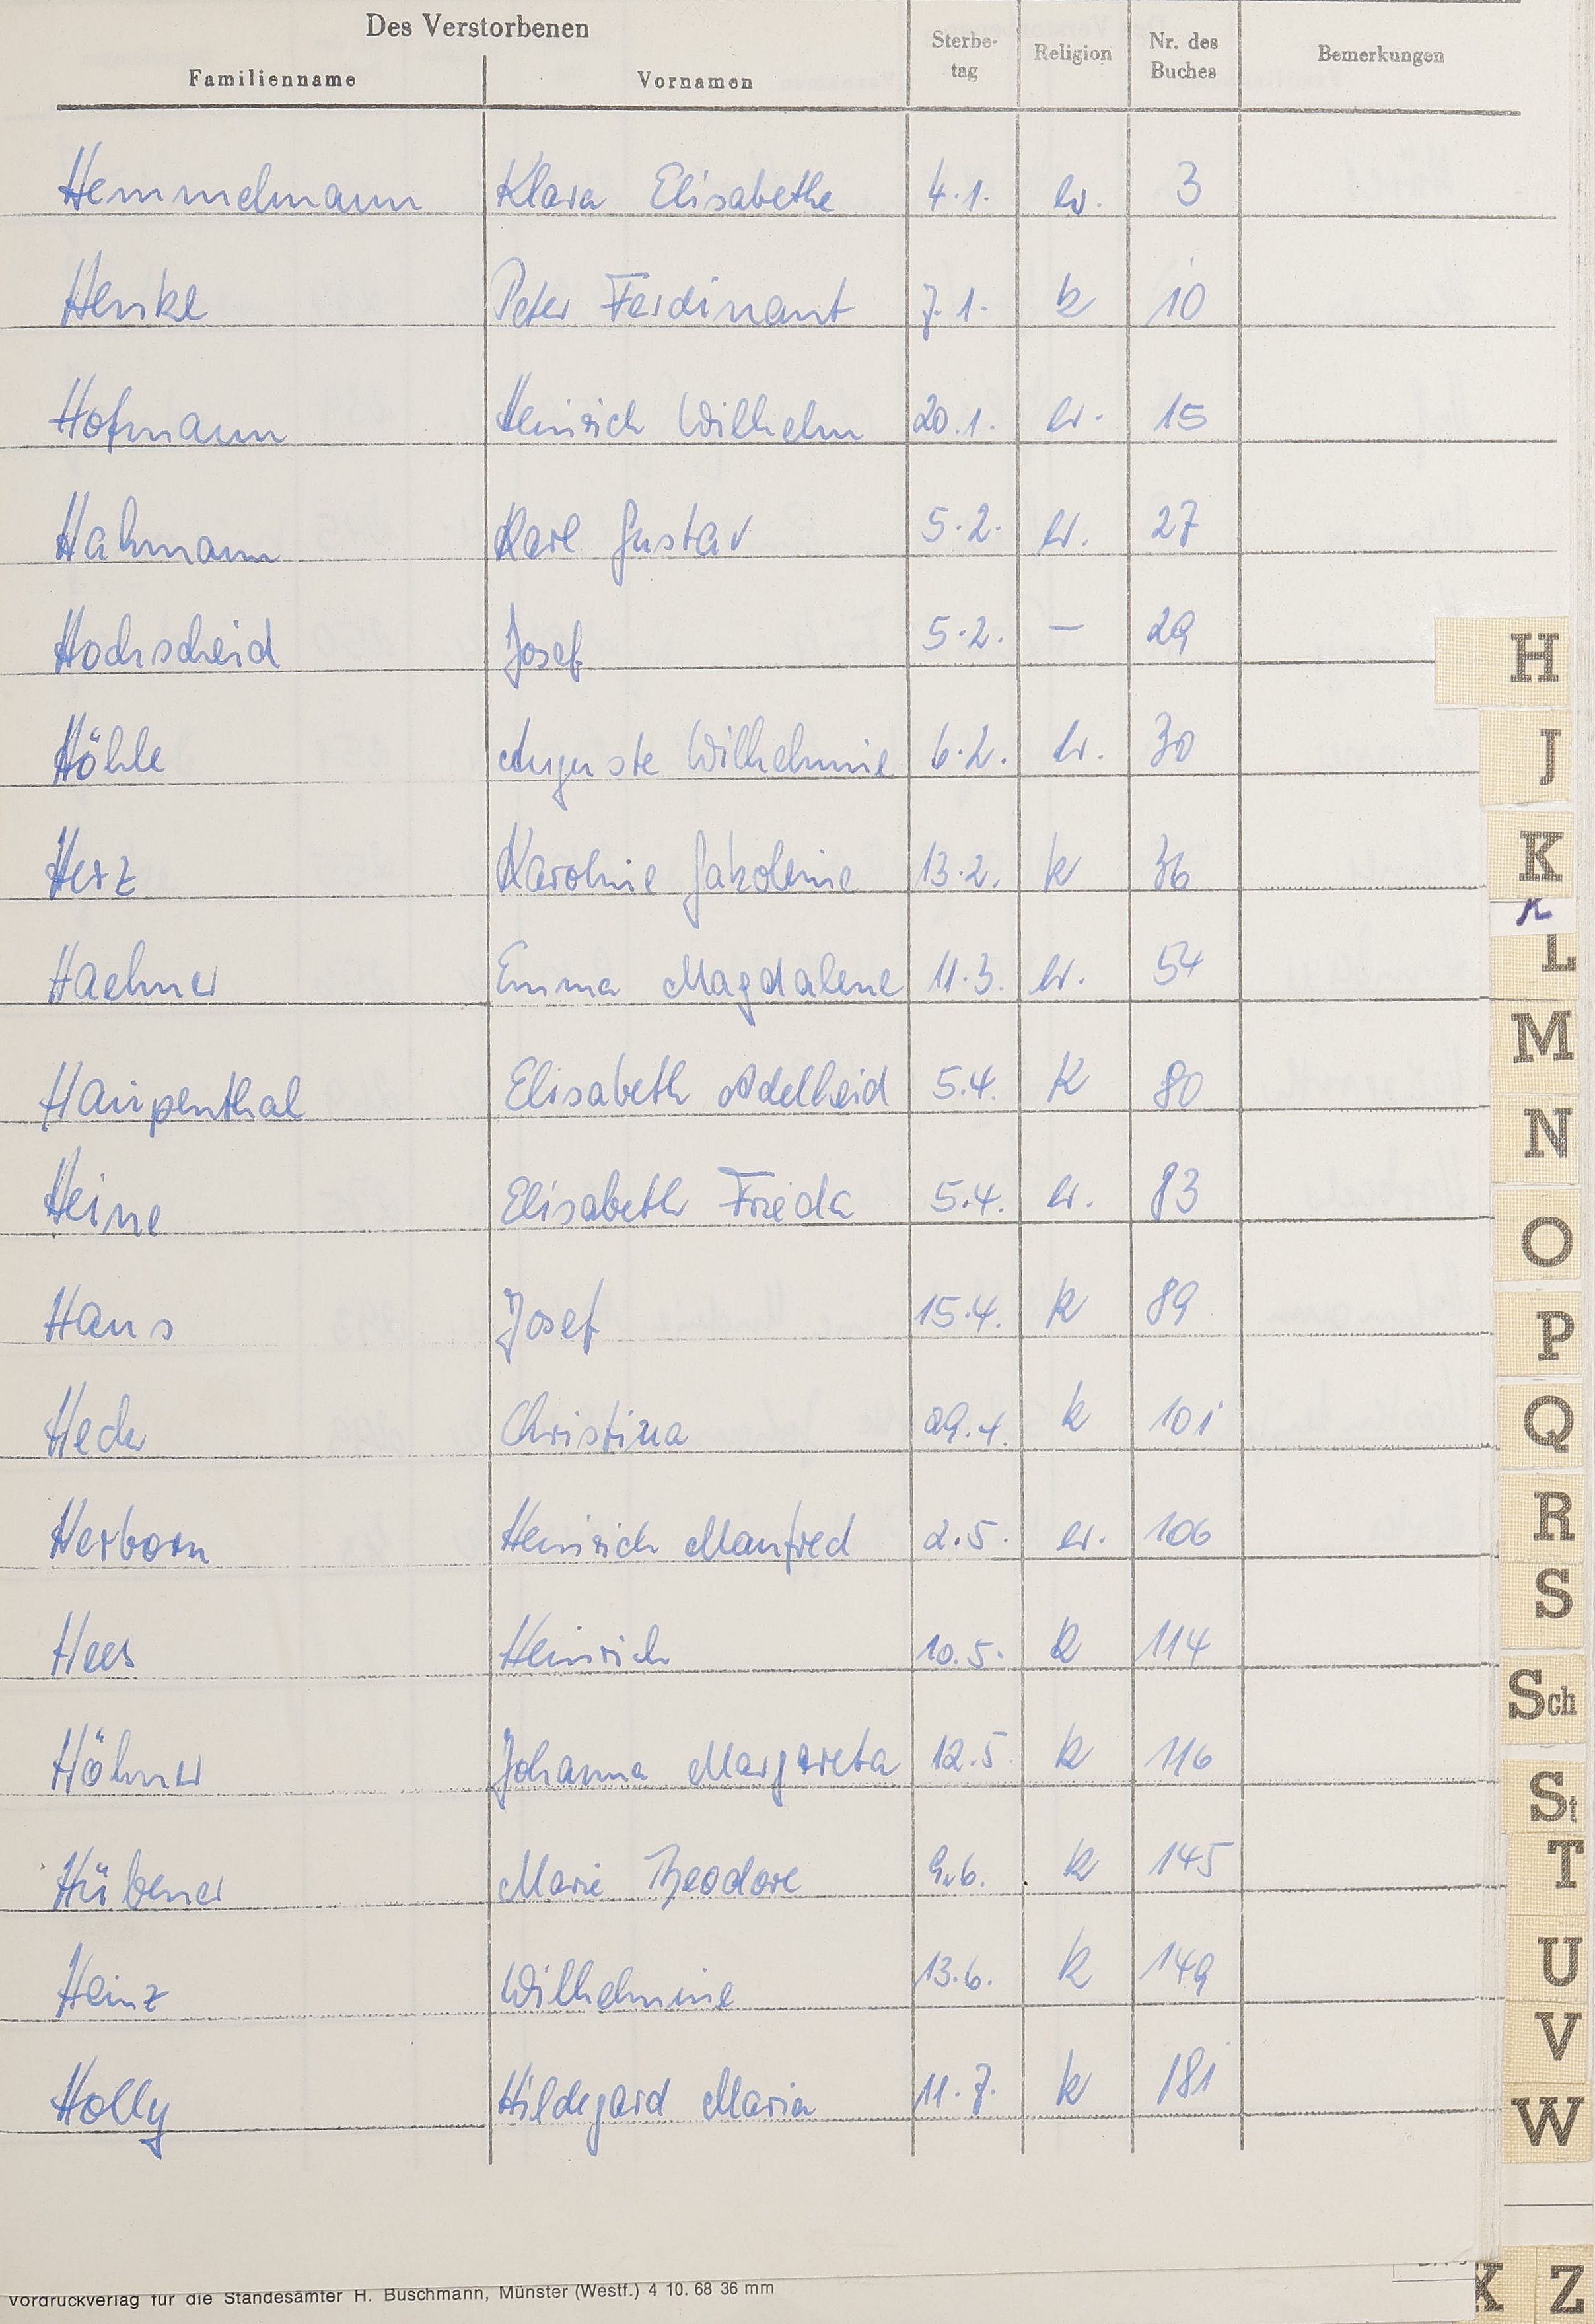 Des Verstorbenen
Familienname Vornamen Sterbe-tag Religion Nr. des Buches Bemerkungen
Hemmelmann Klara Elisabethe 4.1. ev. 3
Henke Peter Ferdinant 7.1. k 10
Hofmann Heinrich Wilhelm 20.1. ev. 15
Hahmann Karl Gustav 5.2. ev. 27
Hochscheid Josef 5.2. — 29
Höhle Auguste Wilhelmine 6.2. ev. 30
Herz Karoline Jakobine 13.2. k 36
Haehner Emma Magdalene 11.3. ev. 54
Haupenthal Elisabeth Adelheid 5.4. K 80
Heine Elisabeth Frieda 5.4. ev. 83
Haus Josef 15.4. k 89
Heck Christina 29.4. k 101
Herborn Heinrich Manfred 2.5. ev. 106
Hees Heinrich 10.5. k 114
Höhner Johanna Margareta 12.5. k 116
Hübener Marie Theodore 9.6. k 145
Heinz Wilhelmine 13.6. k 149
Holly Hildegard Maria 11.7. k 181
H
J
K
K
L
M
N
O
P
Q
R
S
Sch
St
T
U
V
W
X Z
Vordruckverlag für die Standesämter H. Buschmann, Münster (Westf.) 4 10. 68 36 mm